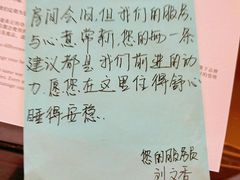 房间会旧,但我们的服务
与心意常新,您的每一条
建议都是我们前进的动
力,愿您在这里住得舒心
睡得安稳.
您的服务员
刘文香